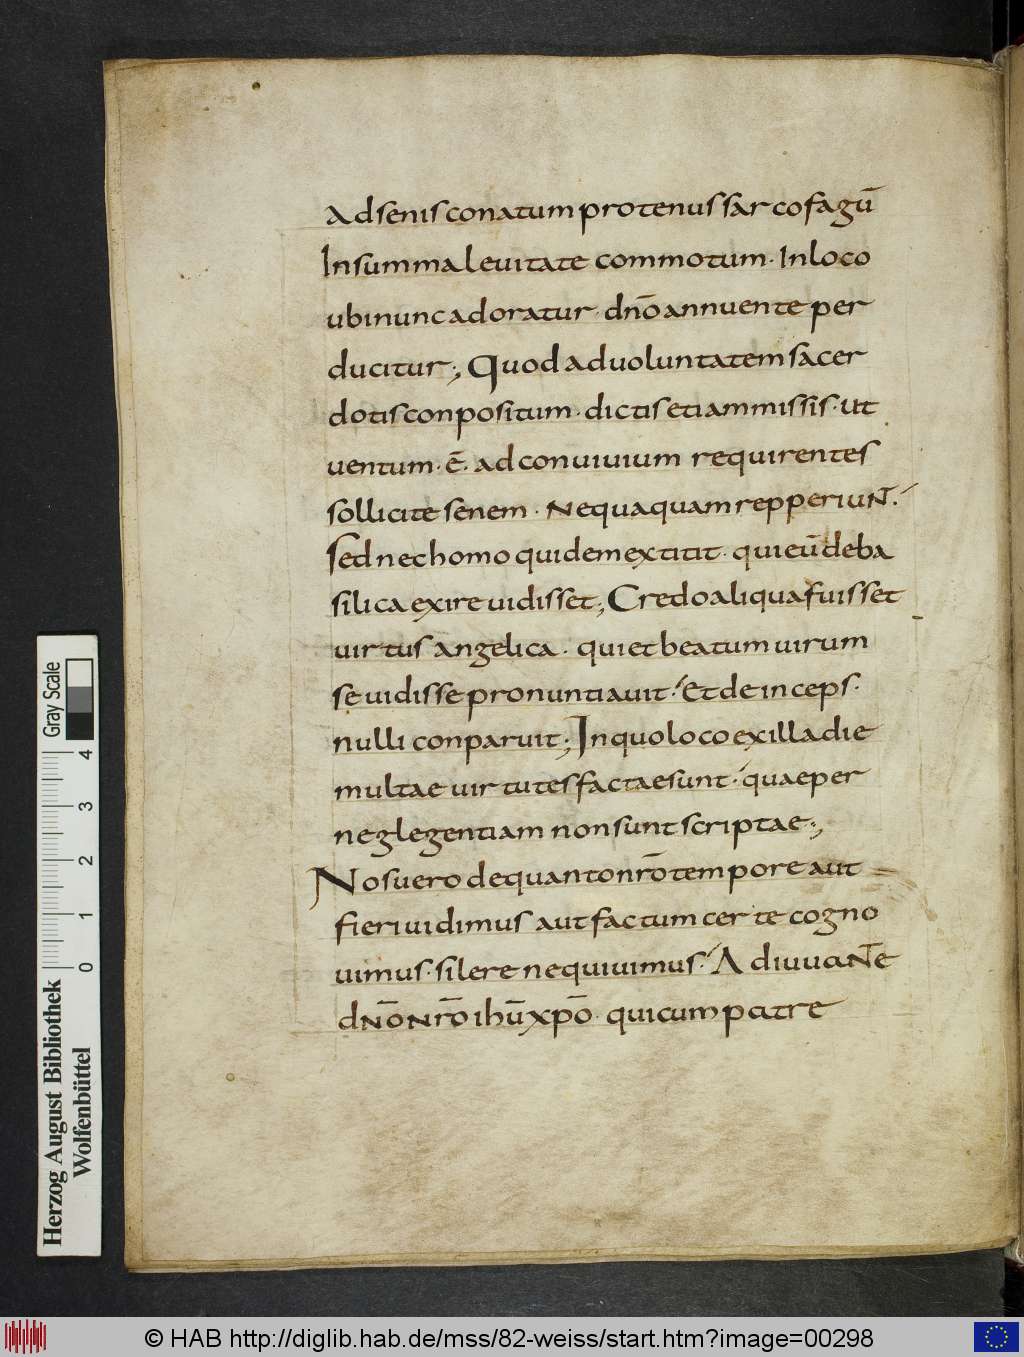 Ad senis conatum protenus sarcofagū
In summa leuitate commotum · In loco
ubi nunc adoratur · dn̄o annuente per
ducitur ; Quod ad uoluntatem sacer
dotis conpositum · dictis etiam missis · ut
uentum · ē · ad conuiuium requirentes
sollicite senem · Nequaquam repperiuN̄ ·
Sed nec homo quidem extitit · qui eū de ba
silica exire uidisset ; Credo aliqua fuisset
uirtus angelica · qui et beatum uirum
se uidisse pronuntiauit · Et deinceps ·
nulli conparuit ; In quo loco ex illa die
multae uirtutes factae sunt · quae per
neglegentiam non sunt scriptae ;
Nos uero de quanto nr̄o tempore aut
fieri uidimus aut factum certe cogno
uimus · silere nequiuimus · AdiuuaN̄e
dN̄o Nr̄o ihū xp̄o · qui cum patre
Gray Scale
4 3 2 1 0
Herzog August Bibliothek
Wolfenbüttel
© HAB http://diglib.hab.de/mss/82-weiss/start.htm?image=00298